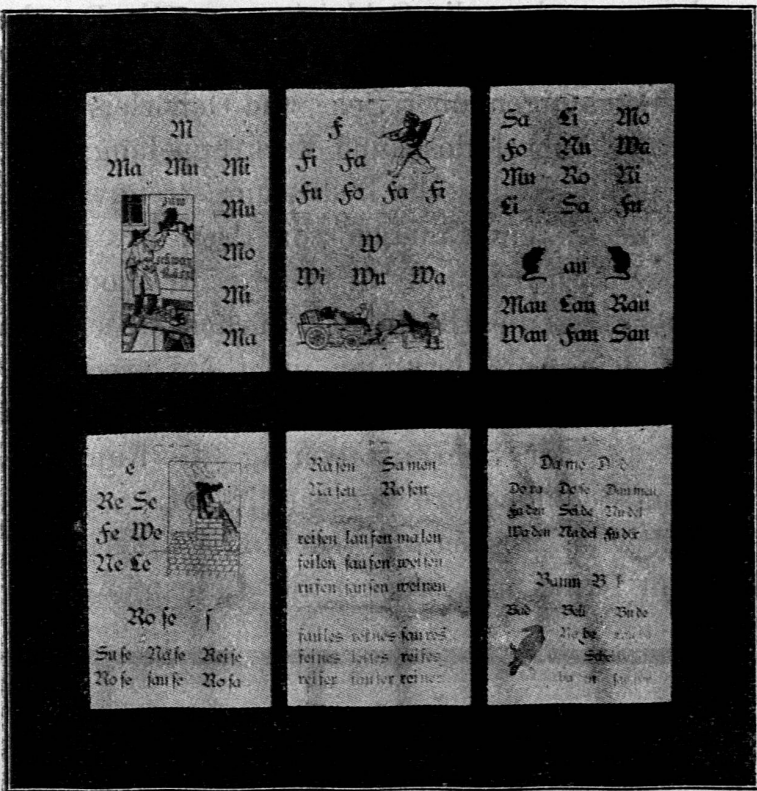 M
Ma Mu Mi
Mu
Mo
Mi
Ma
F
Fi Fa
Fu Fo Fa Fi
W
Wi Wu Wa
Sa Li Mo
Fo Nu Wa
Mu Ro Ni
Li Sa Fu
au
Mau Lau Rau
Wau Fau Sau
e
Re Se
Fe We
Ne Le
Ro ſe ſ
Su ſe Na ſe Rei ſe
Ro ſe ſau ſe Ro ſa
Ra ſen Sa men
Na ſen Ro ſen
reiſen laufen malen
feilen ſauſen weinen
faules reines ſaures
feines reifes
reifer ſaurer reiner
Da me D
Do ra Do ſe Dau men
Fa den Sei de Nu del
Wa den Na del
Baum B
Bad Bu de